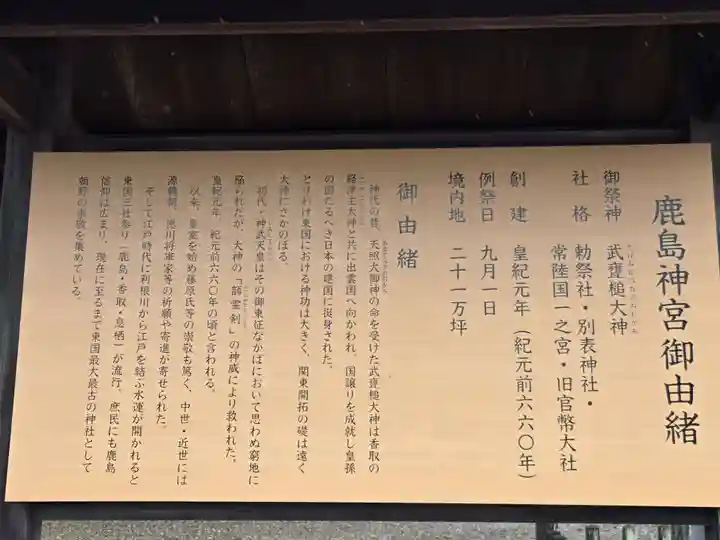 鹿島神宮御由緒
御祭神　武甕槌大神
社　格　勅祭社・別表神社・
常陸国一之宮・旧官幣大社
創　建　皇紀元年（紀元前六六〇年）
例祭日　九月一日
境内地　二十一万坪
御由緒
神代の昔、天照大御神の命を受けた武甕槌大神は香取の
経津主大神と共に出雲国へ向かわれ、国譲りを成就し皇孫
の国たるべき日本の建国に挺身された。
とりわけ東国における神功は大きく、関東開拓の礎は遠く
大神にさかのぼる。
初代・神武天皇はその御東征なかばにおいて思わぬ窮地に
陥られたが、大神の「韴霊剣」の神威により救われた。
皇紀元年、紀元前六六〇年の頃と言われる。
以来、皇室を始め藤原氏等の崇敬も篤く、中世・近世には
源頼朝、徳川将軍家等の祈願や寄進が寄せられた。
そして江戸時代に利根川から江戸を結ぶ水運が開かれると
東国三社参り（鹿島・香取・息栖）が流行、庶民にも鹿島
信仰は広まり、現在に至るまで東国最大最古の神社として
朝野の崇敬を集めている。